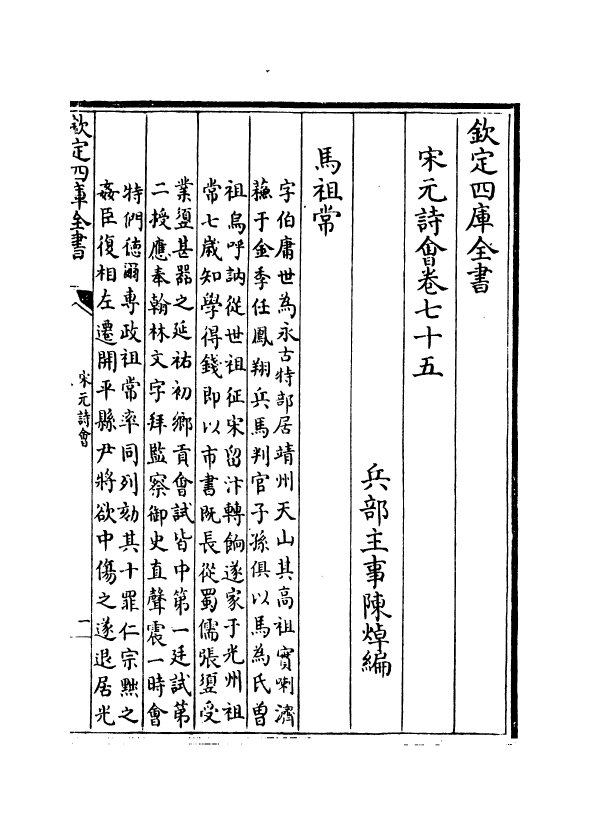 欽定四庫全書
宋元詩會卷七十五
兵部主事陳焯編
馬祖常
字伯庸世為永古特部居靖州天山其高祖實喇濟
蘓于金季任鳳翔兵馬判官子孫俱以馬為氏曽
祖烏呼訥從世祖征宋留汴轉餉遂家于光州祖
常七嵗知學得錢即以市書既長從蜀儒張𡎺受
業𡎺甚器之延祐初鄉貢會試皆中第一廷試第
二授應奉翰林文字拜監察御史直聲震一時會
特們徳爾専政祖常率同列劾其十罪仁宗黜之
姦臣復相左遷開平縣尹將欲中傷之遂退居光
欽定四庫全書
宋元詩會
一